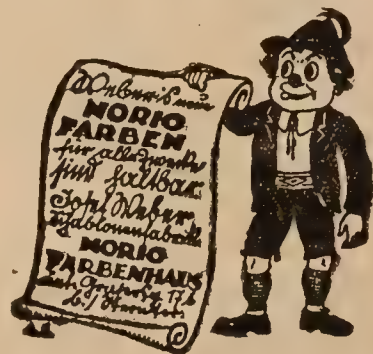 Weber's neue
NORIO
FARBEN
für alle Zwecke
sind haltbar
Josef Weber
Schablonenfabrik
NORIO
FARBENHAUS